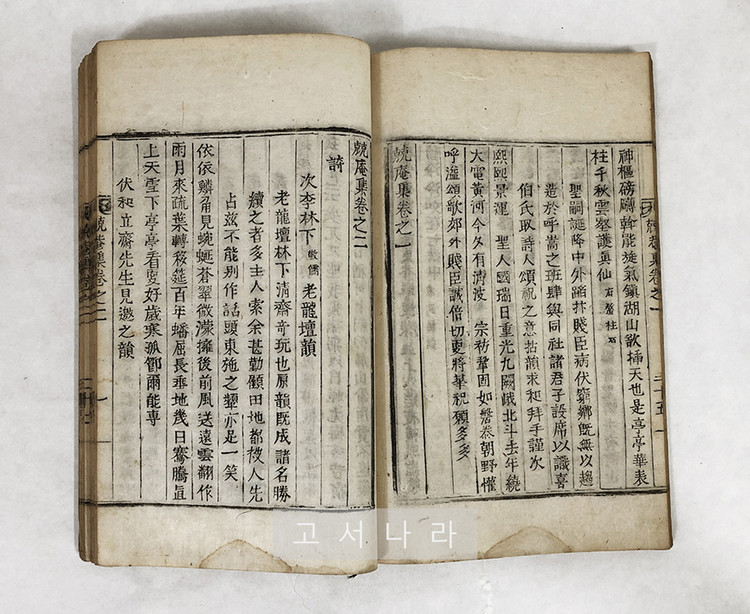 神樞磅礴斡能旋氣鎭湖山欲揷天也是亭亭華表
柱千秋雲鶴護眞仙
聖嗣誕降中外蹈抃賤臣病伏窮鄕旣無以趨
造於呼嵩之班肆與同社諸君子設席以識喜
伯氏取詩人頌祝之意拈韻求和拜手謹次
熙熙景運 聖人國瑞日重光九闕峨北斗去年繞
大電黃河今夕有淸波 宗祊鞏固如磐泰朝野懽
呼溢頌歌郊外賤臣誠倍切更將華祝願多多
兢庵集卷之一
兢庵集卷之二
詩
次李林下 老龍壇韻
老龍壇林下淸齋奇玩也原韻旣成諸名勝
續之者多主人索余甚勤顧田地都被人先
占玆不能別作話頭東施之顰亦是一笑
依依鱗角見蜿蜒蒼翠微濛擁後前風送遠雲翻作
雨月來疏葉轉移筵百年蟠屈長垂地幾日騫騰直
上天雪下亭亭看更好歲寒孤節爾能專
伏和立齋先生見邀之韻
兢庵集卷之二
고서나라